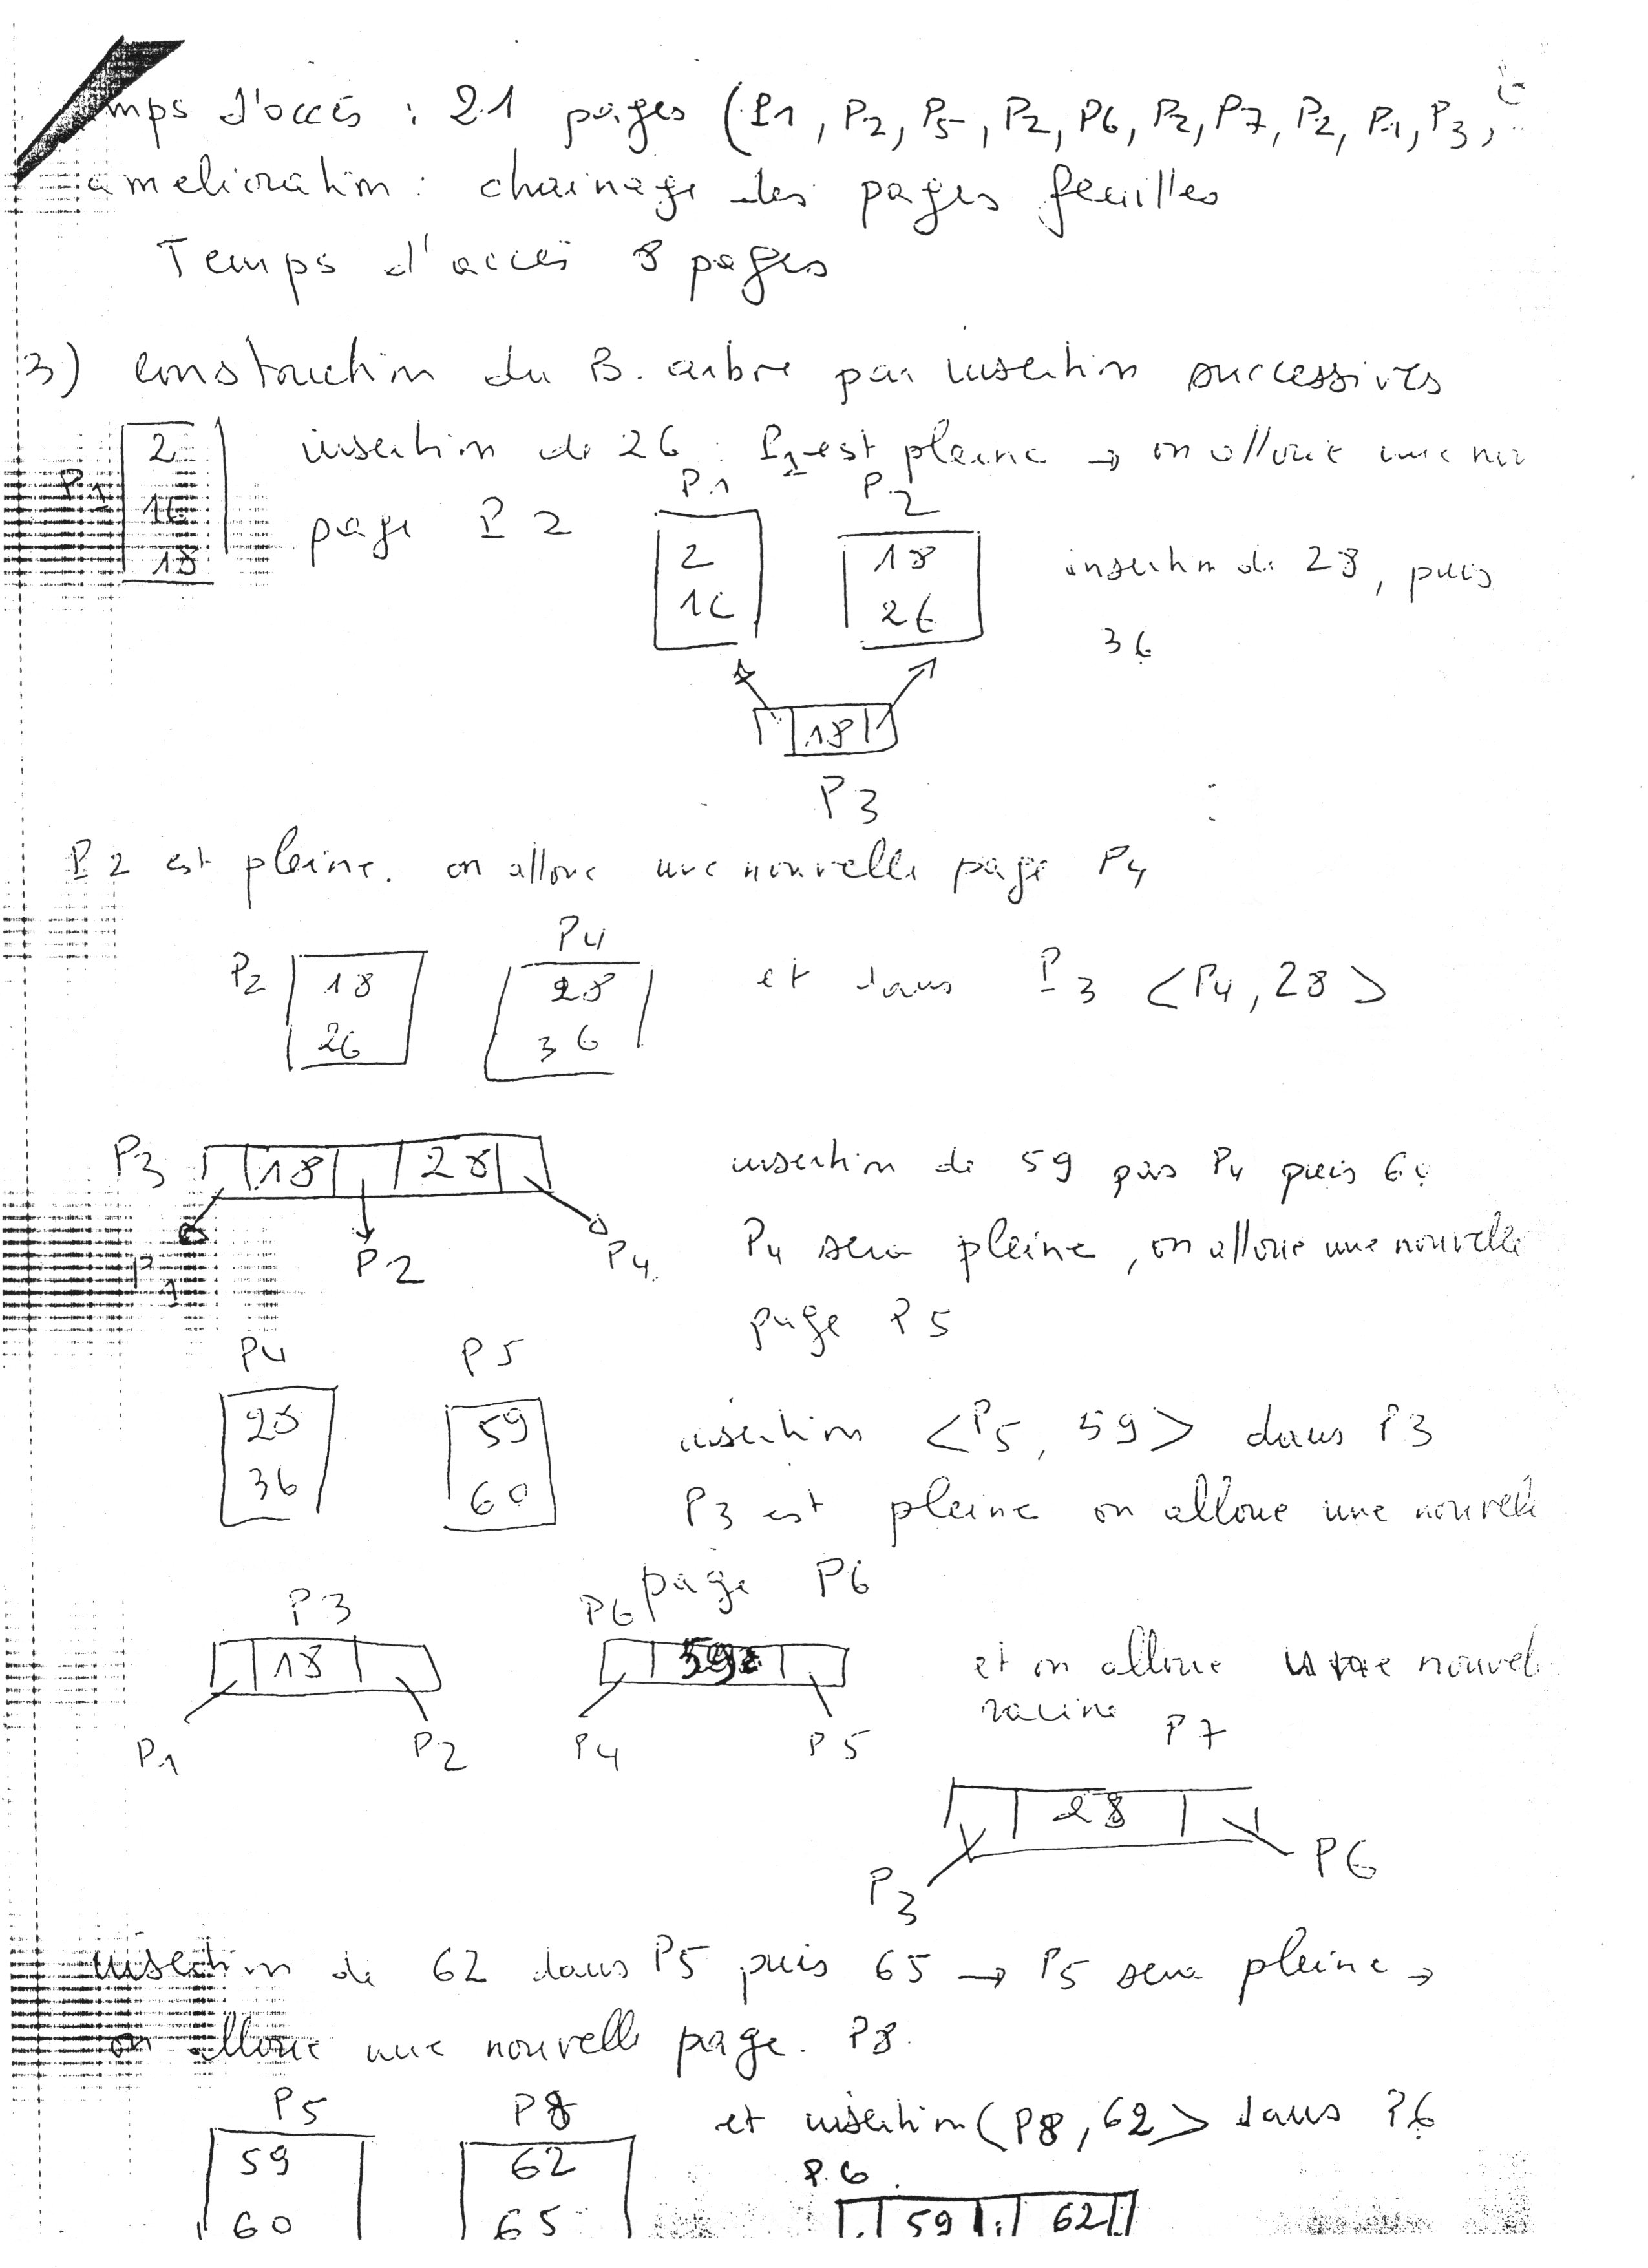 mps d'accès : 21 pages (P1, P2, P5, P2, P6, P2, P7, P2, P1, P3,
amelioration : chainage des pages feuilles
Temps d'accès 8 pages
3) construction du B. arbre par insertion successives
P1
2
16
18
insertion de 26 : P1 est pleine → on alloue une nou
page P2
P1
2
16
P2
18
26
insertion de 28, puis
36
18
P3
P2 est pleine. on alloue une nouvelle page P4
P2
18
26
P4
28
36
et dans P3 <P4, 28>
P3 18 28
P1 P2 P4
insertion de 59 P4 puis 60
P4 sera pleine, on alloue une nouvelle
page P5
P4
28
36
P5
59
60
insertion <P5, 59> dans P3
P3 est pleine on alloue une nouvell
page P6
P3
18
P1 P2
P6
59
P4 P5
et on alloue une nouvel
racine P7
28
P3 P6
insertion de 62 dans P5 puis 65 → P5 sera pleine →
on alloue une nouvelle page. P8.
P5
59
60
P8
62
65
et insertion (P8, 62> dans P6
P.6
59 62